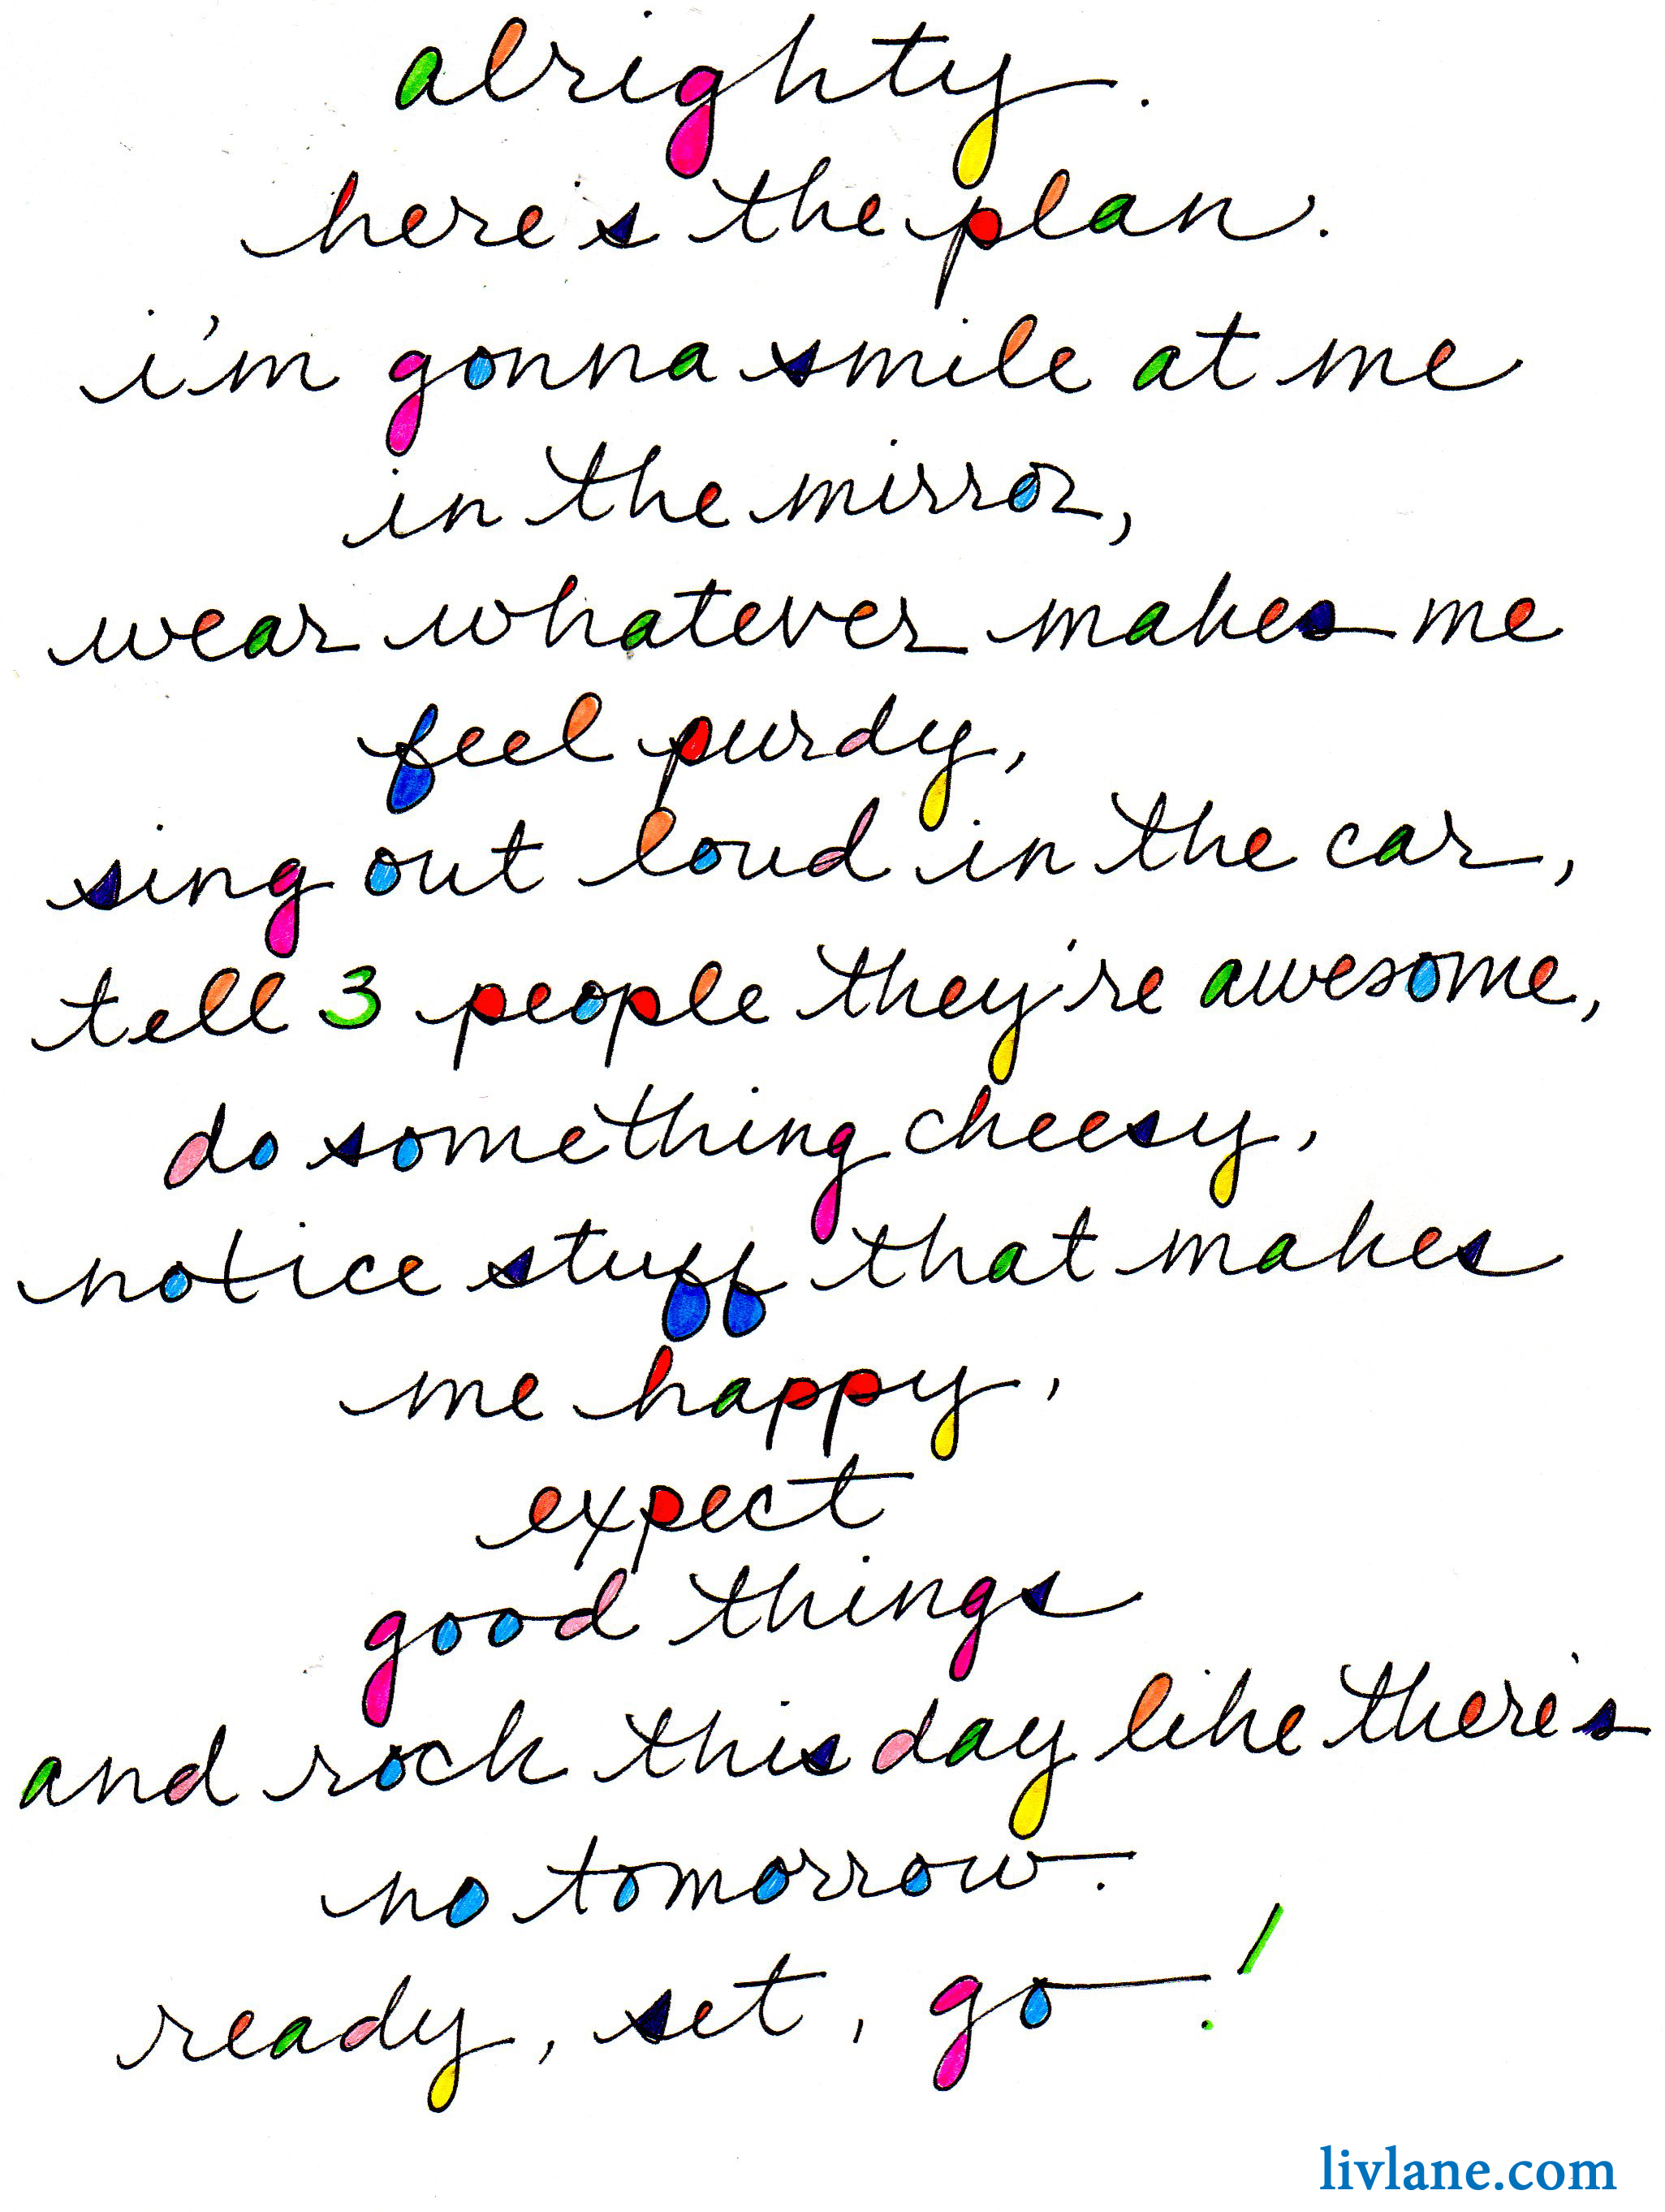 alrighty.
here's the plan.
i'm gonna smile at me
in the mirror,
wear whatever makes me
feel purdy,
sing out loud in the car,
tell 3 people they're awesome,
do something cheesy,
notice stuff that makes
me happy,
expect
good things
and rock this day like there's
no tomorrow.
ready, set, go!
livlane.com